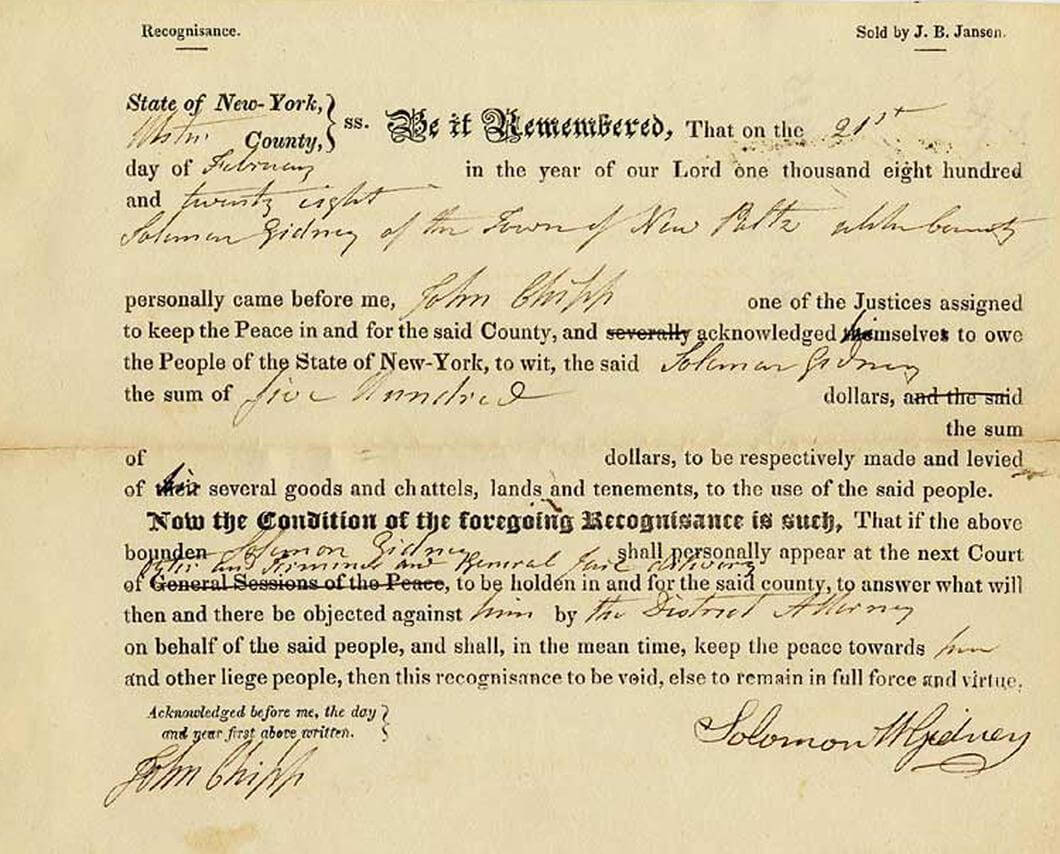 Recognisance. Sold by J. B. Jansen.
State of New-York,
County, ss. Be it Remembered, That on the 21st
day of February in the year of our Lord one thousand eight hundred
and twenty eight
Solomon Gidney of the Town of New Paltz Ulster County
personally came before me, John Chipp one of the Justices assigned
to keep the Peace in and for the said County, and severally acknowledged himself to owe
the People of the State of New-York, to wit, the said Solomon Gidney
the sum of five Hundred dollars, and the said
the sum
of dollars, to be respectively made and levied
of his several goods and chattels, lands and tenements, to the use of the said people.
Now the Condition of the foregoing Recognisance is such, That if the above
bounden Solomon Gidney shall personally appear at the next Court
Oyer and Terminer and General Jail delivery
of General Sessions of the Peace, to be holden in and for the said county, to answer what will
then and there be objected against him by the District Attorney
on behalf of the said people, and shall, in the mean time, keep the peace towards
and other liege people, then this recognisance to be void, else to remain in full force and virtue.
Acknowledged before me, the day
and year first above written.
Solomon W Gidney
John Chipp